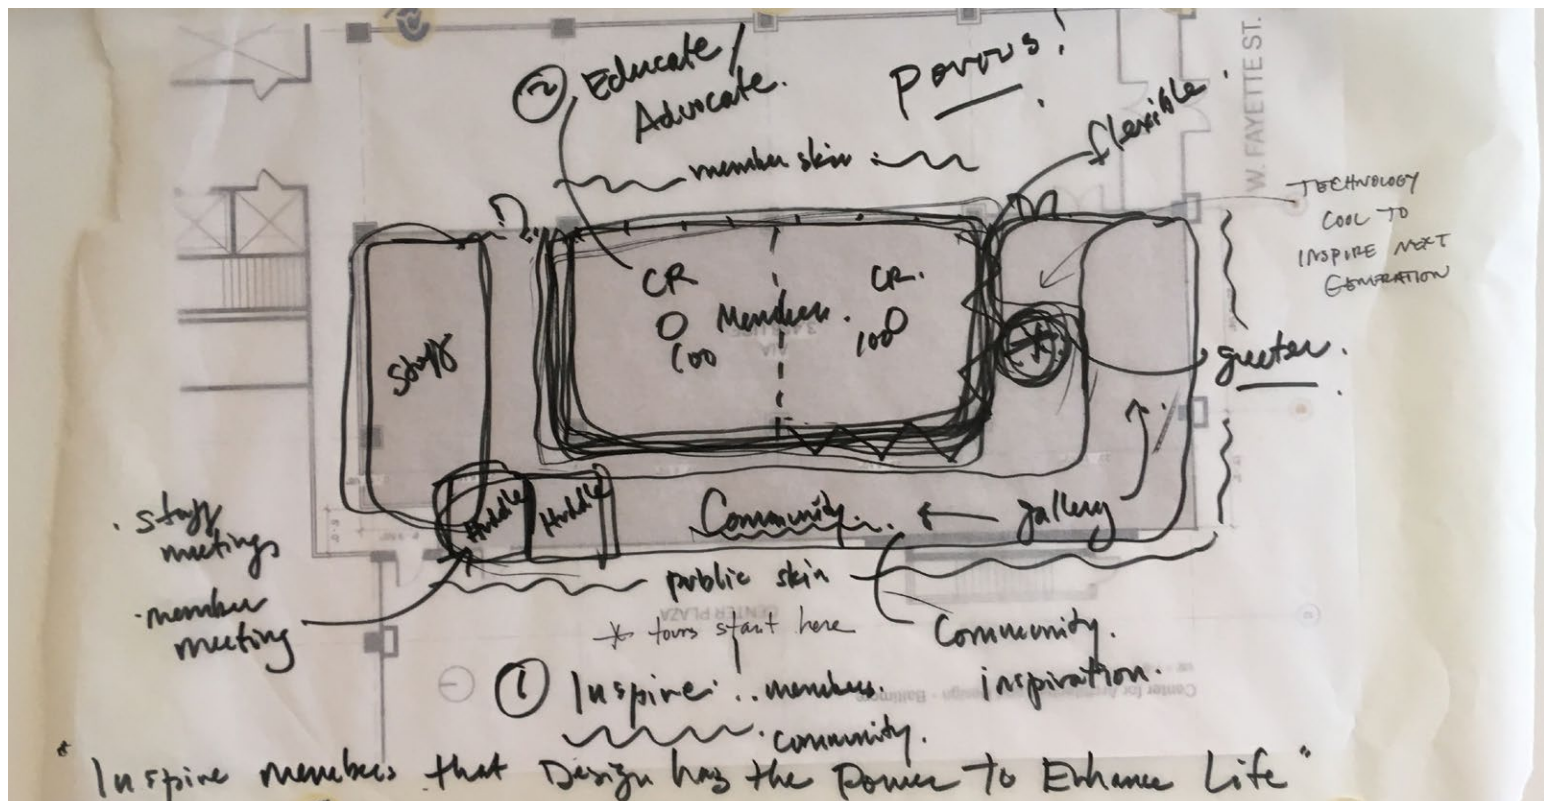 ② Educate/
Advocate.
Porous!
flexible.
member skin
W. FAYETTE ST.
TECHNOLOGY
COOL TO
INSPIRE NEXT
GENERATION
Staff
CR
CR.
Members.
100
100
greeter.
Huddle
Huddle
Community.
gallery
· staff
meetings
· member
meeting
public skin
CENTER PLAZA
* tours start here
Community.
inspiration.
① Inspire: .. members.
. community.
Center for Architecture and Design - Baltimore
"Inspire members that Design has the Power To Enhance Life"